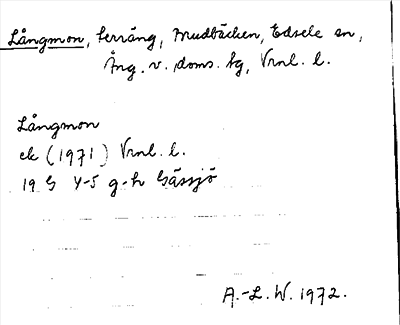 Långmon, terräng, Mudbäcken, Edsele sn,
Ång. v. doms. hg, Vrnl. l.
Långmon
ek (1971) Vrnl. l.
19 G 4-5 g-h Gässjö
A.-L. W. 1972.